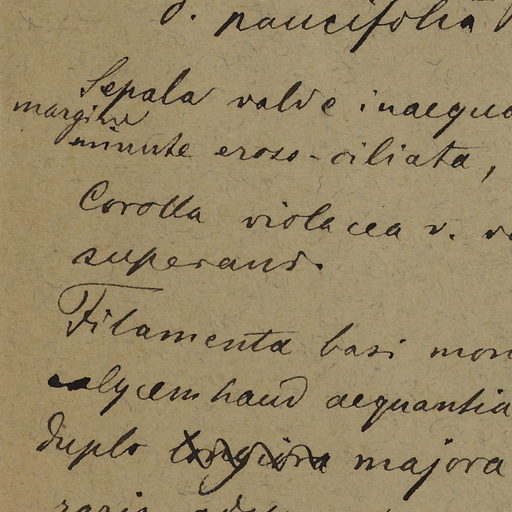 d. paucifolia
Sepala valde inaequa
margine
minute eroso-ciliata,
Corolla violacea v.
superans.
Filamenta basi mon
calycem haud aequantia
duplo longiora majora